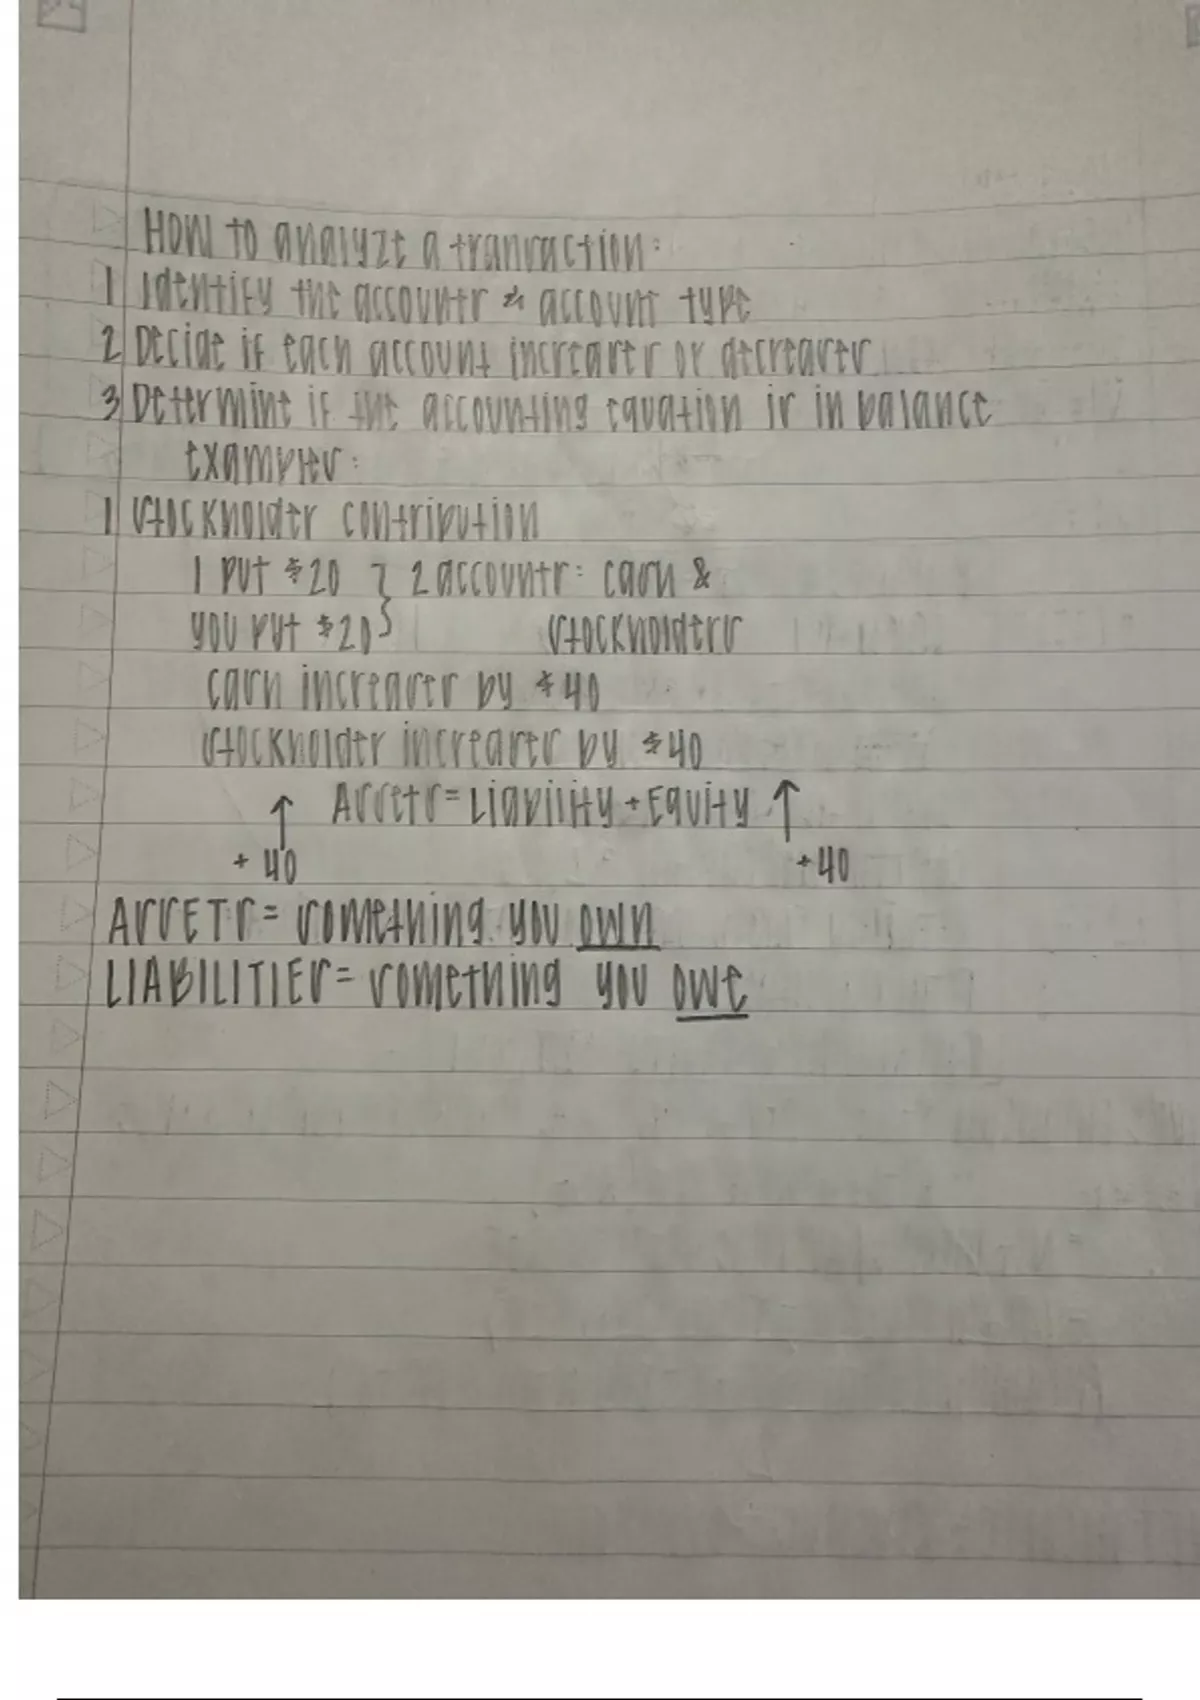 How to analyze a transaction:
1 Identify the accounts & account type
2 Decide if each account increases or decreases
3 Determine if the accounting equation is in balance
Examples:
1 Stockholder contribution
I put $20 } 2 accounts: cash &
you put $20 stockholders
cash increases by $40
stockholder increases by $40
↑ Assets = Liability + Equity ↑
+ 40 + 40
ASSETS = something you own
LIABILITIES = something you owe